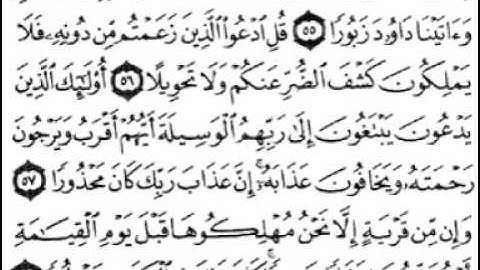 وَءَاتَيْنَا دَاوُۥدَ زَبُورًا ٥٥ قُلِ ٱدْعُوا۟ ٱلَّذِينَ زَعَمْتُم مِّن دُونِهِۦ فَلَا
يَمْلِكُونَ كَشْفَ ٱلضُّرِّ عَنكُمْ وَلَا تَحْوِيلًا ٥٦ أُو۟لَٰٓئِكَ ٱلَّذِينَ
يَدْعُونَ يَبْتَغُونَ إِلَىٰ رَبِّهِمُ ٱلْوَسِيلَةَ أَيُّهُمْ أَقْرَبُ وَيَرْجُونَ
رَحْمَتَهُۥ وَيَخَافُونَ عَذَابَهُۥٓ ۚ إِنَّ عَذَابَ رَبِّكَ كَانَ مَحْذُورًا ٥٧
وَإِن مِّن قَرْيَةٍ إِلَّا نَحْنُ مُهْلِكُوهَا قَبْلَ يَوْمِ ٱلْقِيَٰمَةِ